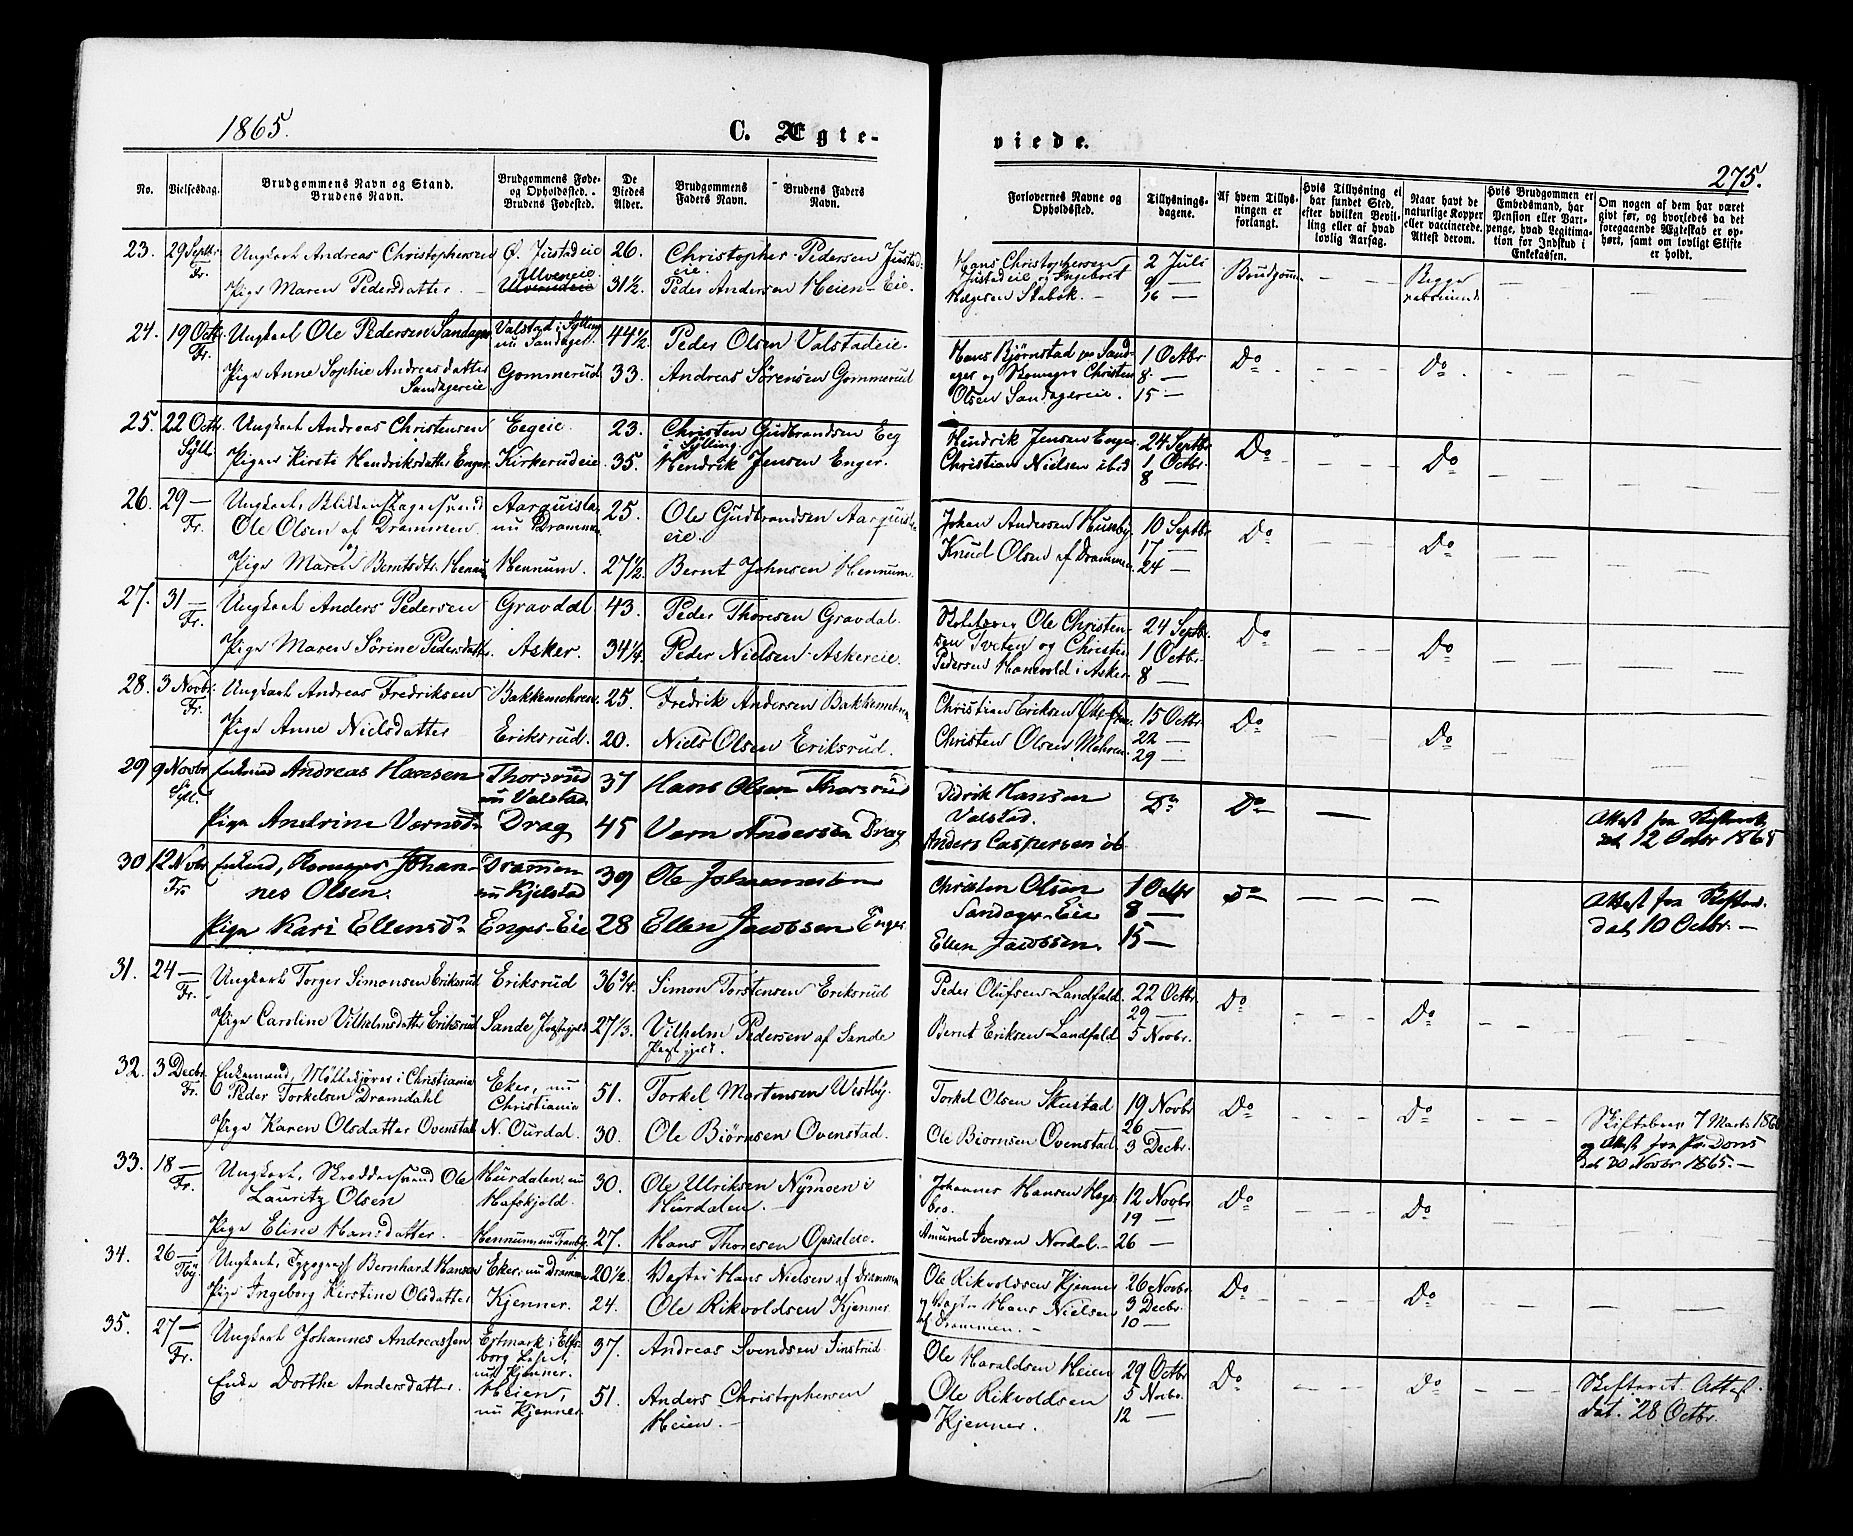 1865.
C. Ægte-
No.
Vielsesdag.
Brudgommens Navn og Stand.
Brudens Navn.
Brudgommens Føde-
og Opholdssted. -
Brudens Fødested.
De
Viedes
Alder.
Brudgommens
Faders Navn.
Brudens Faders
Navn.
23. 29 Septbr Ungkarl Andreas Christophersen Ø. Justadeie 26. Christopher Pedersen Justad-
Fr. Ulveneie eie.
Pige Maren Pedersdatter 31 1/2. Peder Andersen Heien-Eie.
24. 19 Octbr Ungkarl Ole Pedersen Sandager Valstad i Sylling 44 1/2 Peder Olsen Valstadeie.
Fr. nu Sandager.
Pige Anne Sophie Andreasdatter Gommerud 33. Andreas Sørensen Gommerud
Sandagereie.
25. 22 Octbr. Ungkarl Andreas Christensen Eegeie. 23. Christen Gudbrandsen Eeg
Syll. i Sylling.
Pigen Kirsti Hendriksdatter Enger. Kirkerudeie. 35. Hendrik Jensen Enger.
26. 29 — Ungkarl, 25. Ole Gudbrandsen
Fr. Ole Olsen af Drammen. nu Drammen eie.
Pige Maren Berntsdtr. Hennum Hennum. 27 1/2. Bernt Johnsen Hennum.
27. 31 — Ungkarl Anders Pedersen Gravdal. 43. Peder Thoresen Gravdal.
Fr.
Pige Maren Sørine Pedersdatter. Asker. 34 1/4. Peder Nielsen Askereie.
28. 3 Novbr. Ungkarl Andreas Fredriksen Bakkemehren. 25. Fredrik Andersen Bakkemehren
Fr.
Pige Anne Nielsdatter Eriksrud. 20. Niels Olsen Eriksrud.
29 9 Novbr Enkemd Andreas Hansen Thorsrud 37 Hans Olsen Thorsrud
Syl. nu Valstad.
Pige Andrine Vernsdr Drag 45 Vern Andersen Drag
30 12 Novbr Enkemd, Johan- Drammen 39 Ole Johannesen
Fr. nes Olsen. nu Kjelstad
Pige Kari Ellensdr Enger-Eie 28 Ellen Jacobsen Enger
31. 24 — Ungkarl Torger Simonsen Eriksrud Eriksrud 36 3/4. Simon Torstensen Eriksrud
Fr.
Pige Caroline Vilhelmsdatter Eriksrud Sande 27 1/3. Vilhelm Pedersen af Sande
Præstgjeld.
32. 3 Decbr. Enkemand, i Christiania Eker, nu 51. Torkel Mortensen Westby.
Fr. Peder Torkelsen Dramdahl Christiania
Pige Karen Olsdatter Ovenstad N. Ourdal. 30. Ole Biørnsen Ovenstad.
33. 18 — Ungkarl, Skreddersvend Ole Hurdalen, nu 30. Ole Ulriksen Nymoen i
Fr. Lauritz Olsen Hafskjold. Hurdalen.
Pige Eline Hansdatter. Hennum, nu 27. Hans Thoresen Opsaleie.
34. 26 — Ungkarl, Typograf Bernhard Hansen Eker, nu Drammen 20 1/2 Vægter Hans Nielsen af Drammen
Tby.
Pige Ingeborg Kirstine Olsdatter Kjenner. 24. Ole Rikvoldsen Kjenner.
35. 27 — Ungkarl Johannes Andreassen i Elfs- 37. Andreas Svendsen
Fr. borg Lehn,
nu Kjenner.
Enke Dorthe Andersdatter. Heien, 51. Anders Christophersen
nu Kjenner. Heien. —
viede.
275.
Forlovernes Navne og
Opholdssted.
Tillysnings-
dagene.
Af hvem Tillys-
ningen er
forlangt.
Hvis Tillysning ei
har fundet Sted.
efter hvilken Bevil-
ling eller af hvad
lovlig Aarsag.
Naar havt de
naturlige Kopper
eller vaccinerede.
Attest derom.
Hvis Brudgommen er
Embedsmand, har
Pension eller Vart-
penge, hvad Legitima-
tion for Indskud i
Enkekassen.
Om nogen af dem har været
gift før, og hvorledes da det
foregaaende Ægteskab er op-
hørt, samt om lovligt Skifte
er holdt.
Hans Christophersen 2 Juli Brudgommen — Begge — —
Justadeie og Ingebret 9 — vaccinerede
Stabæk. — 16 —
Hans Bjørnstad Sand- 1 Octbr Do Do
ager og Christen 8 —
Olsen Sandagereie. 15 —
Hendrik Jensen Enger. 24 Septbr. Do Do
Christian Nielsen ibid 1 Octbr.
8 —
Johan Andersen 10 Septbr Do Do
Knud Olsen af Drammen. 17 —
24 —
Skolelærer Ole Christen- 24 Septbr. Do Do
sen Tveten og Christen 1 Octbr.
Pedersen Hanevold i Asker. 8 —
Christian Eriksen 15 Octbr. Do Do
Christen Olsen Mehren. 22 —
29 —
Didrik Hansen Do Do — Attest fra Skifteretten
Valstad. dat 12 Octbr 1865
Anders Caspersen ib.
Christen Olsen 1 Octbr Do — — — Attest fra
Sandager-Eie 8 — dat 10 Octbr. —
Ellen Jacobsen. 15 —
Peder Olufsen Landfald. 22 Octbr. Do Do
29 —
Bernt Eriksen Landfald 5 Novbr.
Torkel Olsen Skustad 19 Novbr Do Do Skiftebrev 7 Marts
26 — og Attest fra
Ole Biørnsen Ovenstad. 3 Decbr. dat 20 Novbr 1865. —
Johannes Hansen Hags- 12 Novbr Do Do
bro. 19 —
Amund Iversen Nordal. — 26 —
Ole Rikvoldsen Kjenner 26 Novbr. Do Do
og Vægter Hans Nielsen 3 Decbr.
af Drammen. — 10 —
Ole Haraldsen Heien 29 Octbr. Do Do Skifteret. Attest
Ole Rikvoldsen 5 Novbr. dat. 28 Octbr.
Kjenner. 12 —